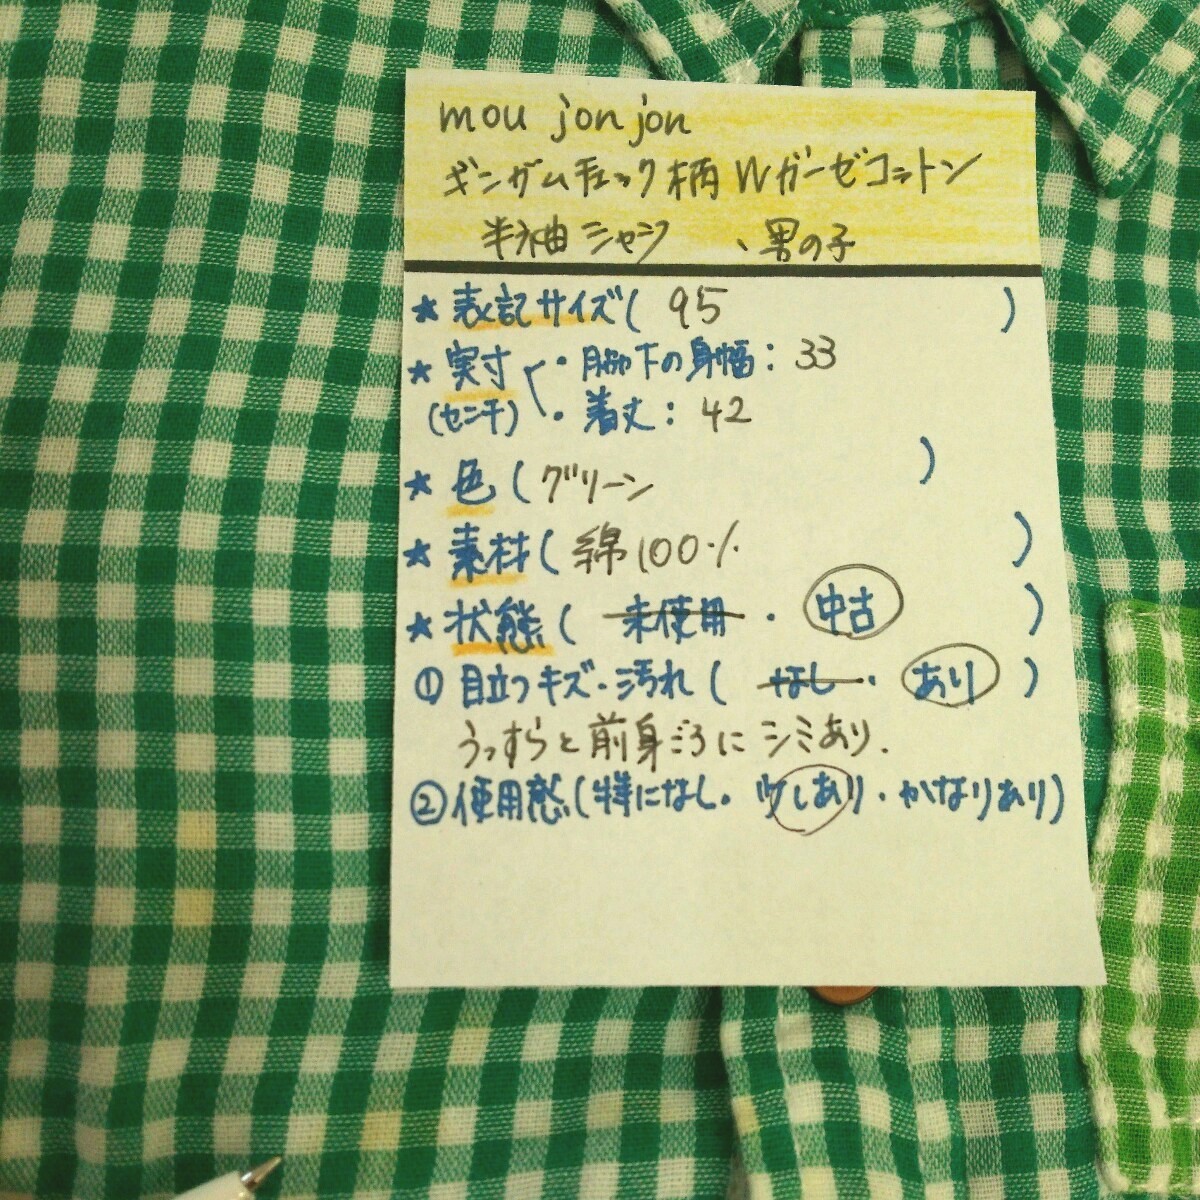 mou jonjon
ギンガムチェック柄Wガーゼコットン
半袖シャツ 、男の子
★表記サイズ( 95 )
★実寸 ・脇下の身幅:33
(センチ) ・着丈:42
★色(グリーン )
★素材(綿100% )
★状態( 未使用・中古 )
①目立つキズ・汚れ( なし・あり )
うっすらと前身ごろにシミあり.
②使用感(特になし・少しあり・かなりあり)